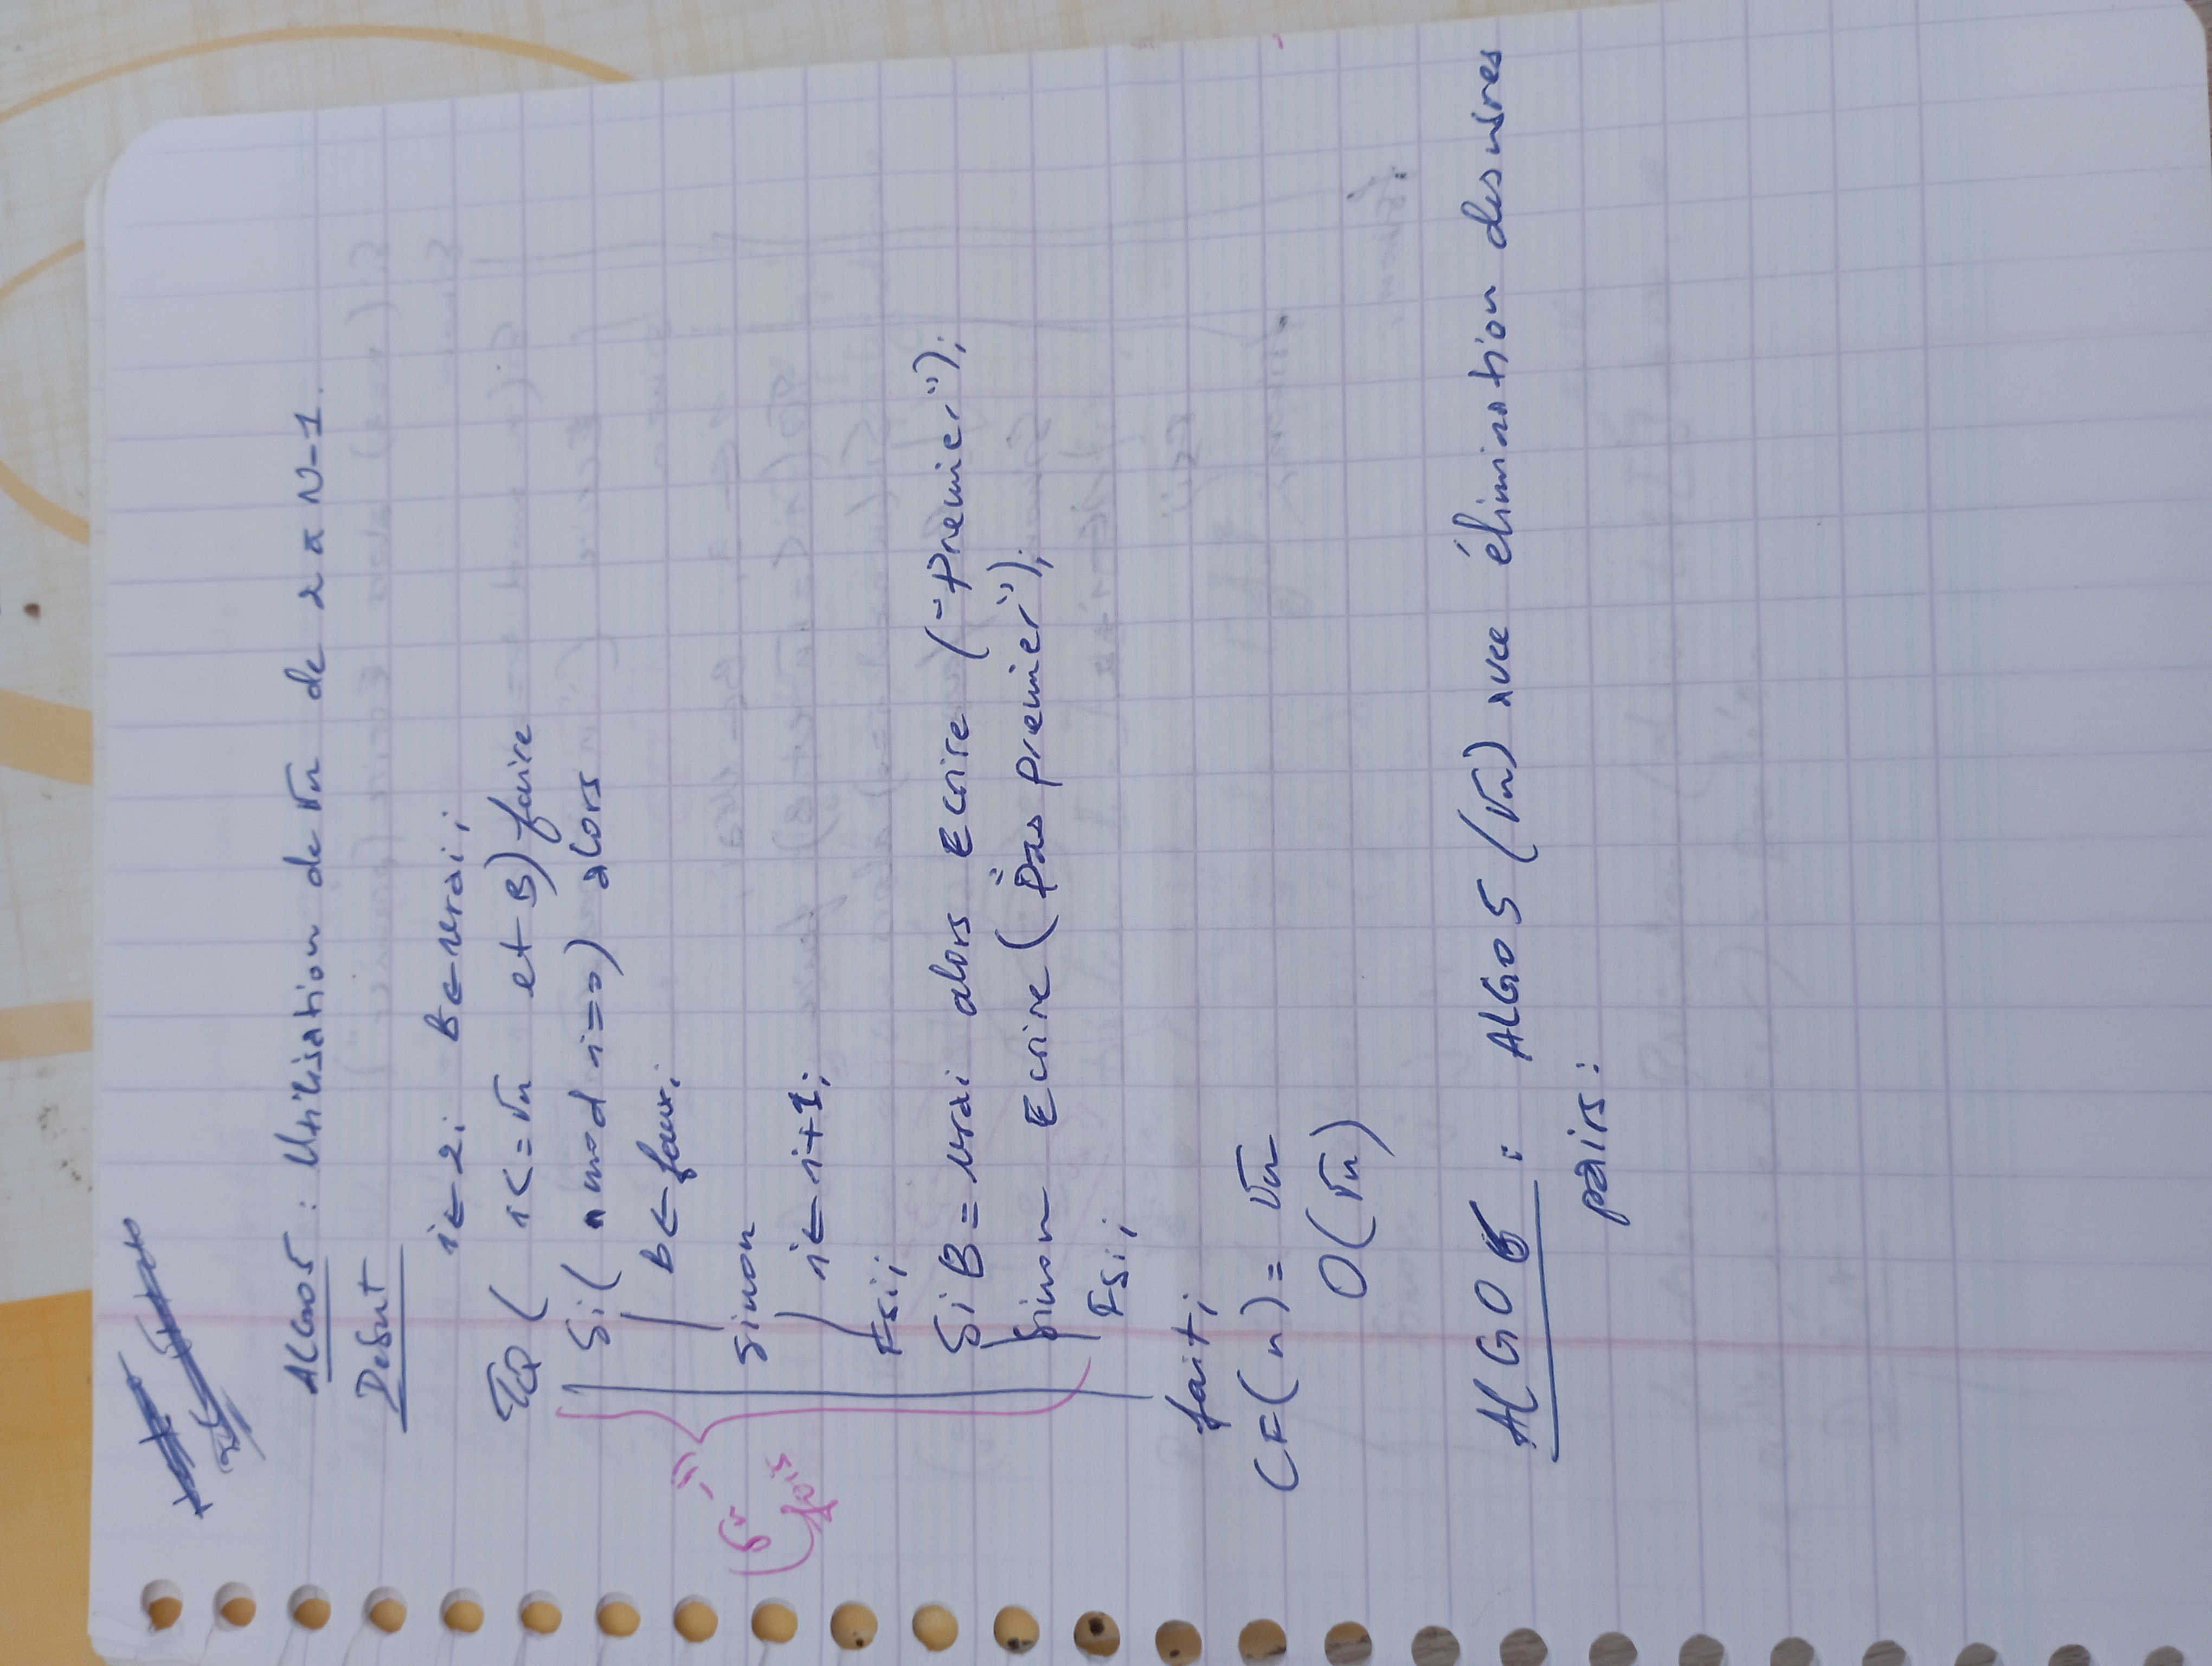 ALGO5 : Utilisation de √n de 2 a N-1.
Debut
i ← 2; B ← vrai;
TQ ( i <= √n et B) faire
Si ( n mod i == 0) alors
B ← faux;
Sinon
i ← i+1;
Fsi;
(√n -1)
fois
Si B = vrai alors Ecrire ("Premier");
Sinon Ecrire ("Pas premier");
Fsi;
fait;
CF(n) = √n
O(√n)
ALGO 6 : ALGO5 (√n) avec élimination des nbres
pairs :